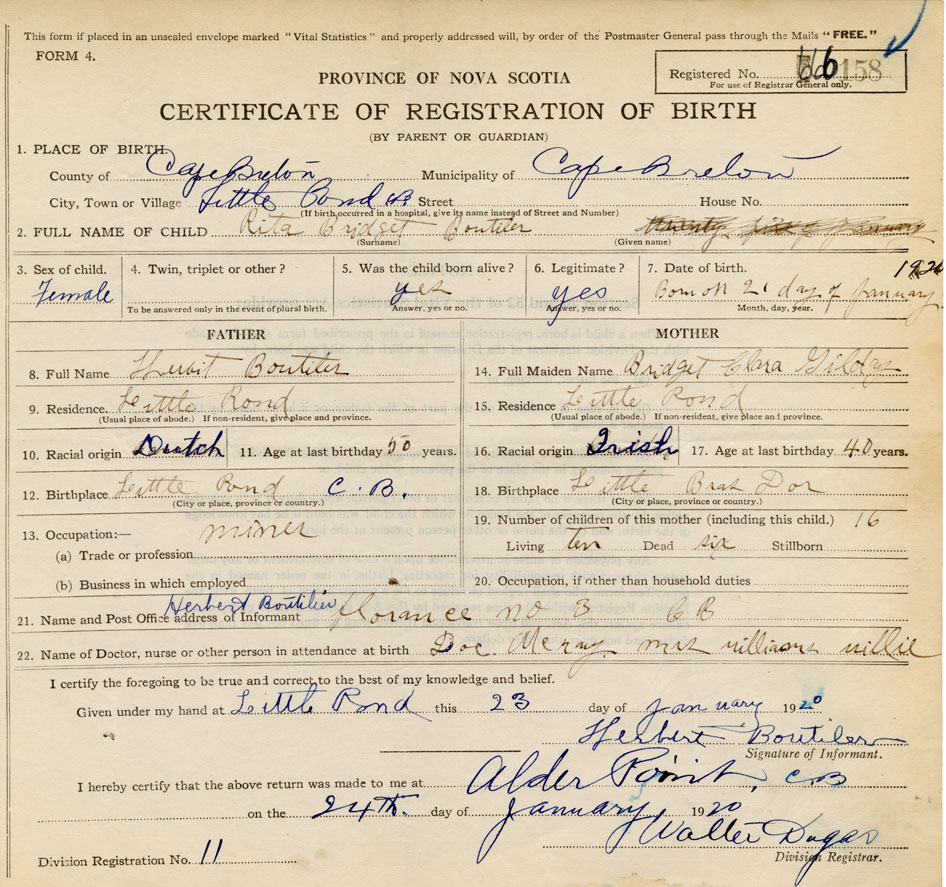 This form if placed in an unsealed envelope marked "Vital Statistics" and properly addressed will, by order of the Postmaster General pass through the Mails "FREE."
FORM 4.
Registered No. 158
For use of Registrar General only.
PROVINCE OF NOVA SCOTIA
CERTIFICATE OF REGISTRATION OF BIRTH
(BY PARENT OR GUARDIAN)
1. PLACE OF BIRTH.
County of Cape Breton Municipality of Cape Breton
City, Town or Village Little Pond CB Street House No.
(If birth occurred in a hospital, give its name instead of Street and Number)
2. FULL NAME OF CHILD Rita Bridget Boutiler
(Surname) (Given name)
3. Sex of child. 4. Twin, triplet or other? 5. Was the child born alive? 6. Legitimate? 7. Date of birth. 192
Female yes yes Born on 21 day of January
To be answered only in the event of plural birth. Answer, yes or no. Answer, yes or no. Month, day, year.
FATHER MOTHER
8. Full Name Boutiler 14. Full Maiden Name Bridget Clara
9. Residence. Little Pond 15. Residence Little Pond
(Usual place of abode.) If non-resident, give place and province. (Usual place of abode.) If non-resident, give place and province.
10. Racial origin Dutch 11. Age at last birthday 50 years. 16. Racial origin Irish 17. Age at last birthday 40 years.
12. Birthplace Little Pond C.B. 18. Birthplace Little Bras Dor
(City or place, province or country.) (City or place, province or country.)
13. Occupation:— miner 19. Number of children of this mother (including this child.) 16
(a) Trade or profession Living ten Dead six Stillborn
(b) Business in which employed 20. Occupation, if other than household duties
Herbert Boutilier
21. Name and Post Office address of Informant florance no 3 CB
22. Name of Doctor, nurse or other person in attendance at birth Doc. mrs williams willie
I certify the foregoing to be true and correct to the best of my knowledge and belief.
Given under my hand at Little Pond this 23 day of January 1920
Herbert Boutiler
Signature of Informant.
I hereby certify that the above return was made to me at Alder Point, CB
on the 24th. day of January 1920
Walter Dugas
Division Registrar.
Division Registration No. 11